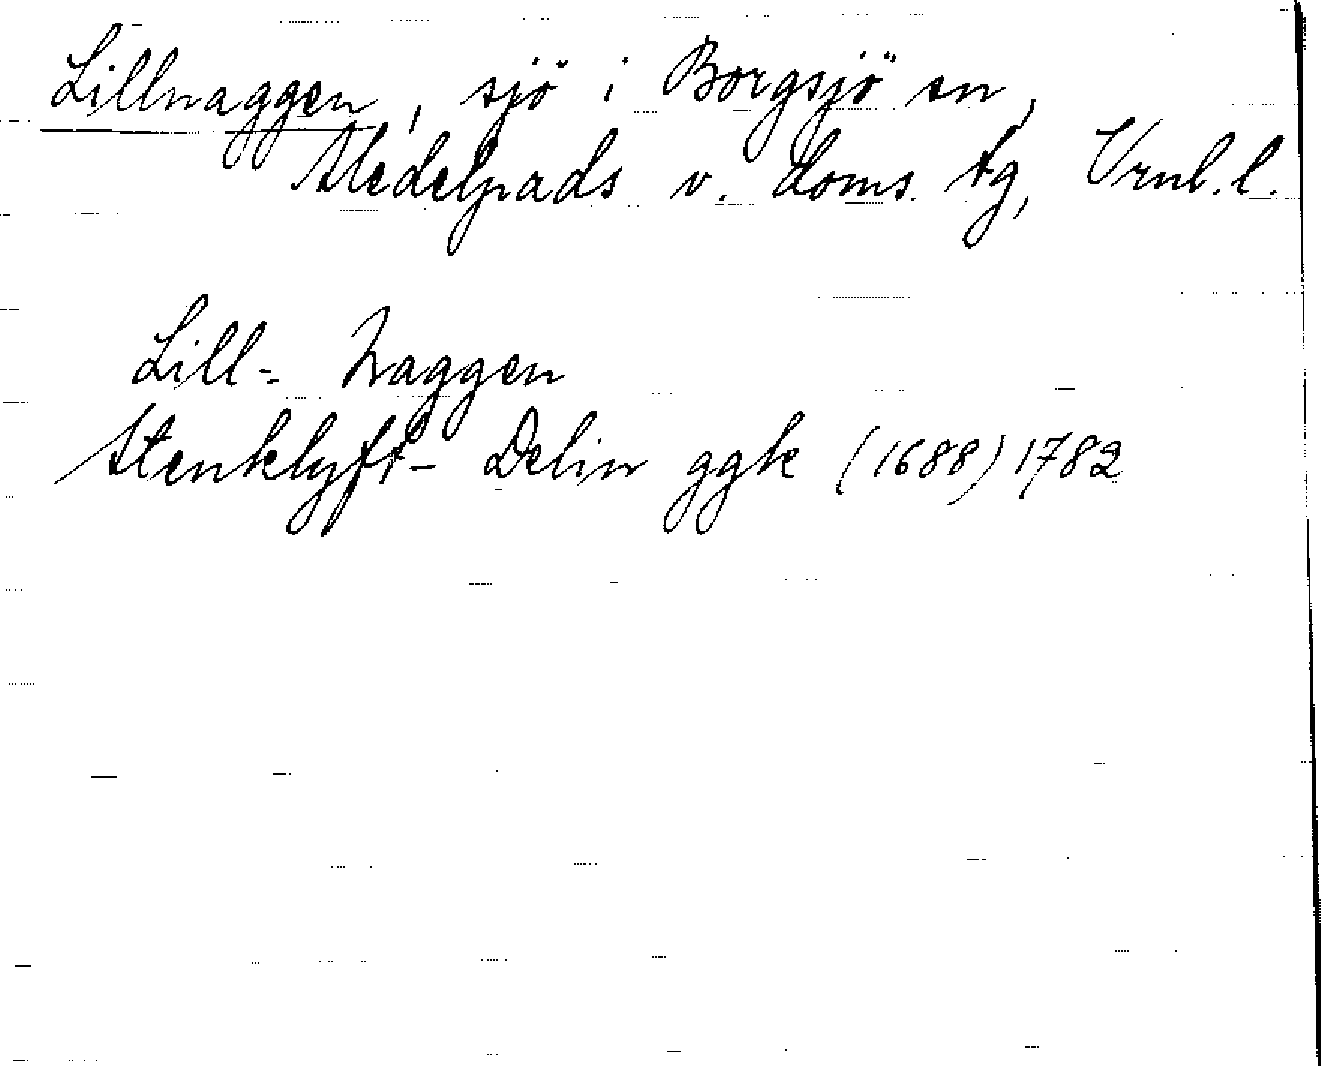 Lillnaggen, sjö i Borgsjö sn,
Medelpads v. doms. tg, Vrnl. l.
Lill-Naggen
Stenklyft- Delin ggk (1688) 1782